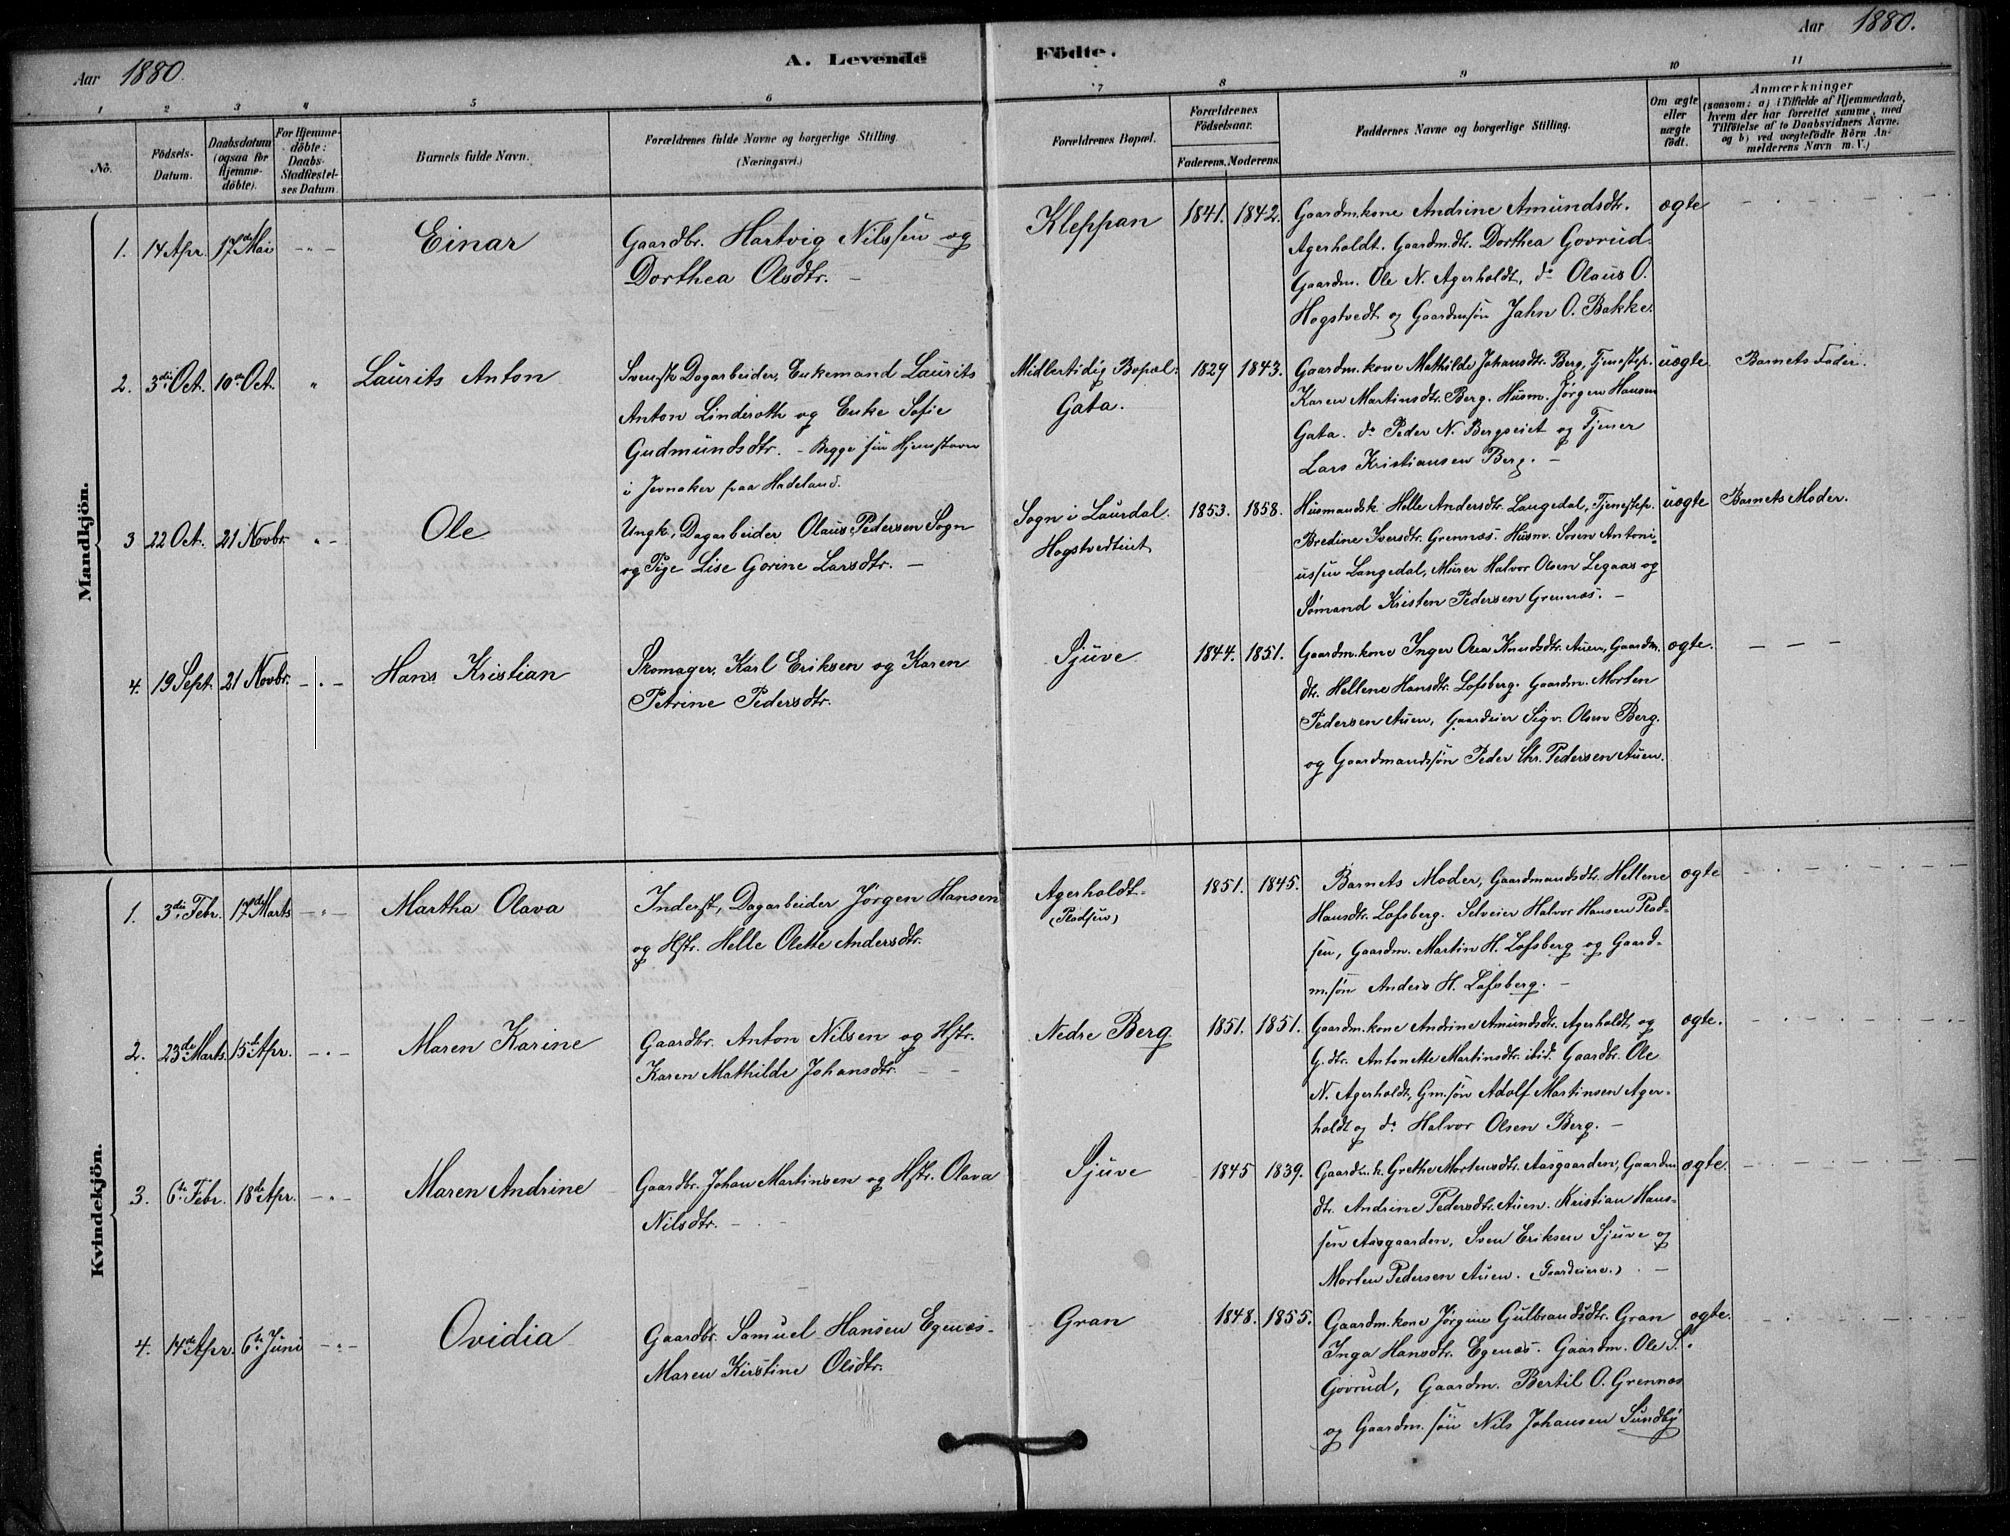 Aar 1880.
A. Levende Födte.
Aar 1880.
1 2 3 4 5 6 7 8 9 10 11
No.
Födsels-Datum.
Daabsdatum (ogsaa for Hjemme-döbte).
For Hjemme-döbte: Daabs-Stadfæstel-ses Datum.
Barnets fulde Navn.
Forældrenes fulde Navne og borgerlige Stilling.
(Næringsvei.)
Forældrenes Bopæl.
Forældrenes Födselsaar.
Faderens. Moderens.
Faddernes Navne og borgerlige Stilling.
Om ægte eller uægte født.
Anmærkninger
(saasom: a) i Tilfælde af Hjemmedaab,
hvem der har forrettet samme, med
Tilföielse af to Daabsvidners Navne,
og b) ved uægtefödte Börn An-
melderens Navn m. V.)
Mandkjön.
1. 14 Apr. 17de Mai - " - Einar
Gaardbr. Hartvig Nilssen og
Dorthea Olsdtr. -
Kleppan 1841. 1842.
Gaardm.kone Andrine Amundsdtr.
Agerholdt. Gaardm.dtr. Dorthea Govrud.
Gaardm. Ole N. Agerholdt, do Olaus O.
Hogstvedt og Gaardmsøn Jahn O. Bakke.
ægte
2. 3die Oct. 10de Oct. " Laurits Anton
Svensk Dagarbeider, Enkemand Laurits
Anton Linderoth og Enke Sofie
Gudmundsdtr. - Begge sin Hjemstavn
i Jevnaker paa Hadeland.
Midlertidig Bopæl:
Gata.
1829 1843.
Gaardm.kone Mathilde Johansdtr. Berg, Tjenestep.
Karen Martinsdtr. Berg. Husm. Jørgen Hansen
Gata. do Peder N. Bergseiet og Tjener
Lars Kristiansen Berg. -
uægte
Barnets Fader.
3 22 Oct. 21 Novbr. " - Ole
Ungk., Dagarbeider Olaus Pedersen Sogn
og Pige Lise Gorine Larsdtr. -
Sogn i Laurdal.
Hogstvedteiet
1853. 1858.
Husmandsk. Helle Andersdtr. Langedal, Tjenestep.
Bredine Iversdtr. Grennæs. Husm. Soren Antoni-
ussen Langedal, Murer Halvor Olsen Legaas og
Sømand Kristen Pedersen Grennæs. -
uægte
Barnets Moder.
4. 19 Sept. 21 Novbr. - " - Hans Kristian
Skomager, Karl Eriksen og Karen
Petrine Pedersdtr.
Sjuve 1844. 1851.
Gaardm.kone Inger Olea Knudsdtr. Auen, Gaardm.
dtr. Hellene Hansdtr. Lofsberg. Gaardm. Morten
Pedersen Auen, Gaardeier Sigv. Olsen Berg.
og Gaardmandssøn Peder Chr. Pedersen Auen.
ægte.
Kvindekjön.
1. 3die Febr. 17de Marts - " - Martha Olava
Inderst, Dagarbeider Jørgen Hansen
og Hstr. Helle Olette Andersdtr.
Agerholdt.
1851. 1845.
Barnets Moder, Gaardmandsdtr. Hellene
Hansdtr. Lofsberg. Selveier Halvor Hansen
sen, Gaardm. Martin H. Lofsberg og Gaard-
m.søn Anders H. Lofsberg. -
ægte
2. 23de Marts. 15de Apr. - " - Maren Karine
Gaardbr. Anton Nilsen og Hstr.
Karen Mathilde Johansdtr.
Nedre Berg 1851. 1851.
Gaardm.kone Andrine Amundsdtr. Agerholdt, og
G.dtr. Antonette Martinsdtr. ibid. Gaardbr. Ole
N. Agerholdt, Gm.søn Adolf Martinsen Ager-
holdt og do Halvor Olsen Berg. -
ægte.
3. 6te Febr. 18de Apr. - " - Maren Andrine
Gaardbr. Johan Martinsen og Hstr. Olava
Nilsdtr. -
Sjuve 1845 1839.
Gaardm.k. Grethe Mortensdtr. Aasgaarden, Gaardm
dtr. Andrine Pedersdtr. Auen. Kristian Hans-
sen Aasgaarden, Sven Eriksen Sjuve og
Morten Pedersen Auen. (Gaardeiere.) -
ægte.
4. 14de Apr. 6te Juni - " - Ovidia
Gaardbr. Samuel Hansen Egenæs-
Maren Kirstine Olsdtr.
Gran 1848. 1855.
Gaardm.kone Jørgine Gulbrandsdtr. Gran
Inga Hansdtr. Egenæs. Gaardm. Ole S.
Govrud, Gaardm. Bertil O. Grennæs
og Gaardm. søn Nils Johansen Sundby
ægte.